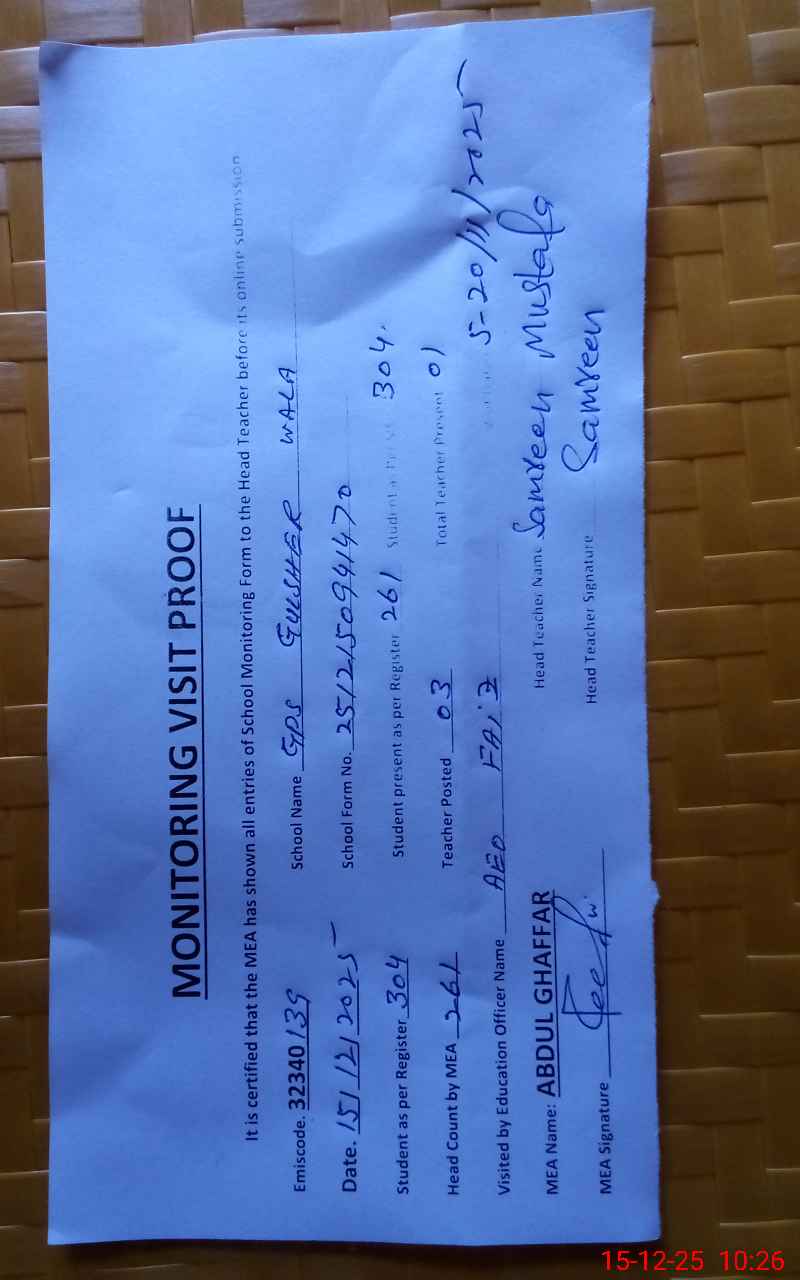 MONITORING VISIT PROOF
It is certified that the MEA has shown all entries of School Monitoring Form to the Head Teacher before its online submission
Emiscode. 32340139 School Name GPS GULSHER WALA
Date. 15/12/2025 School Form No. 2512150941470
Student as per Register 304 Student present as per Register 261 304.
Head Count by MEA 261 Teacher Posted 03 Total Teacher Present 01
Visited by Education Officer Name AEO FAIZ 5-20/11/2025
MEA Name: ABDUL GHAFFAR Head Teacher Name Samreen Mustafa
MEA Signature Head Teacher Signature Samreen
15-12-25 10:26